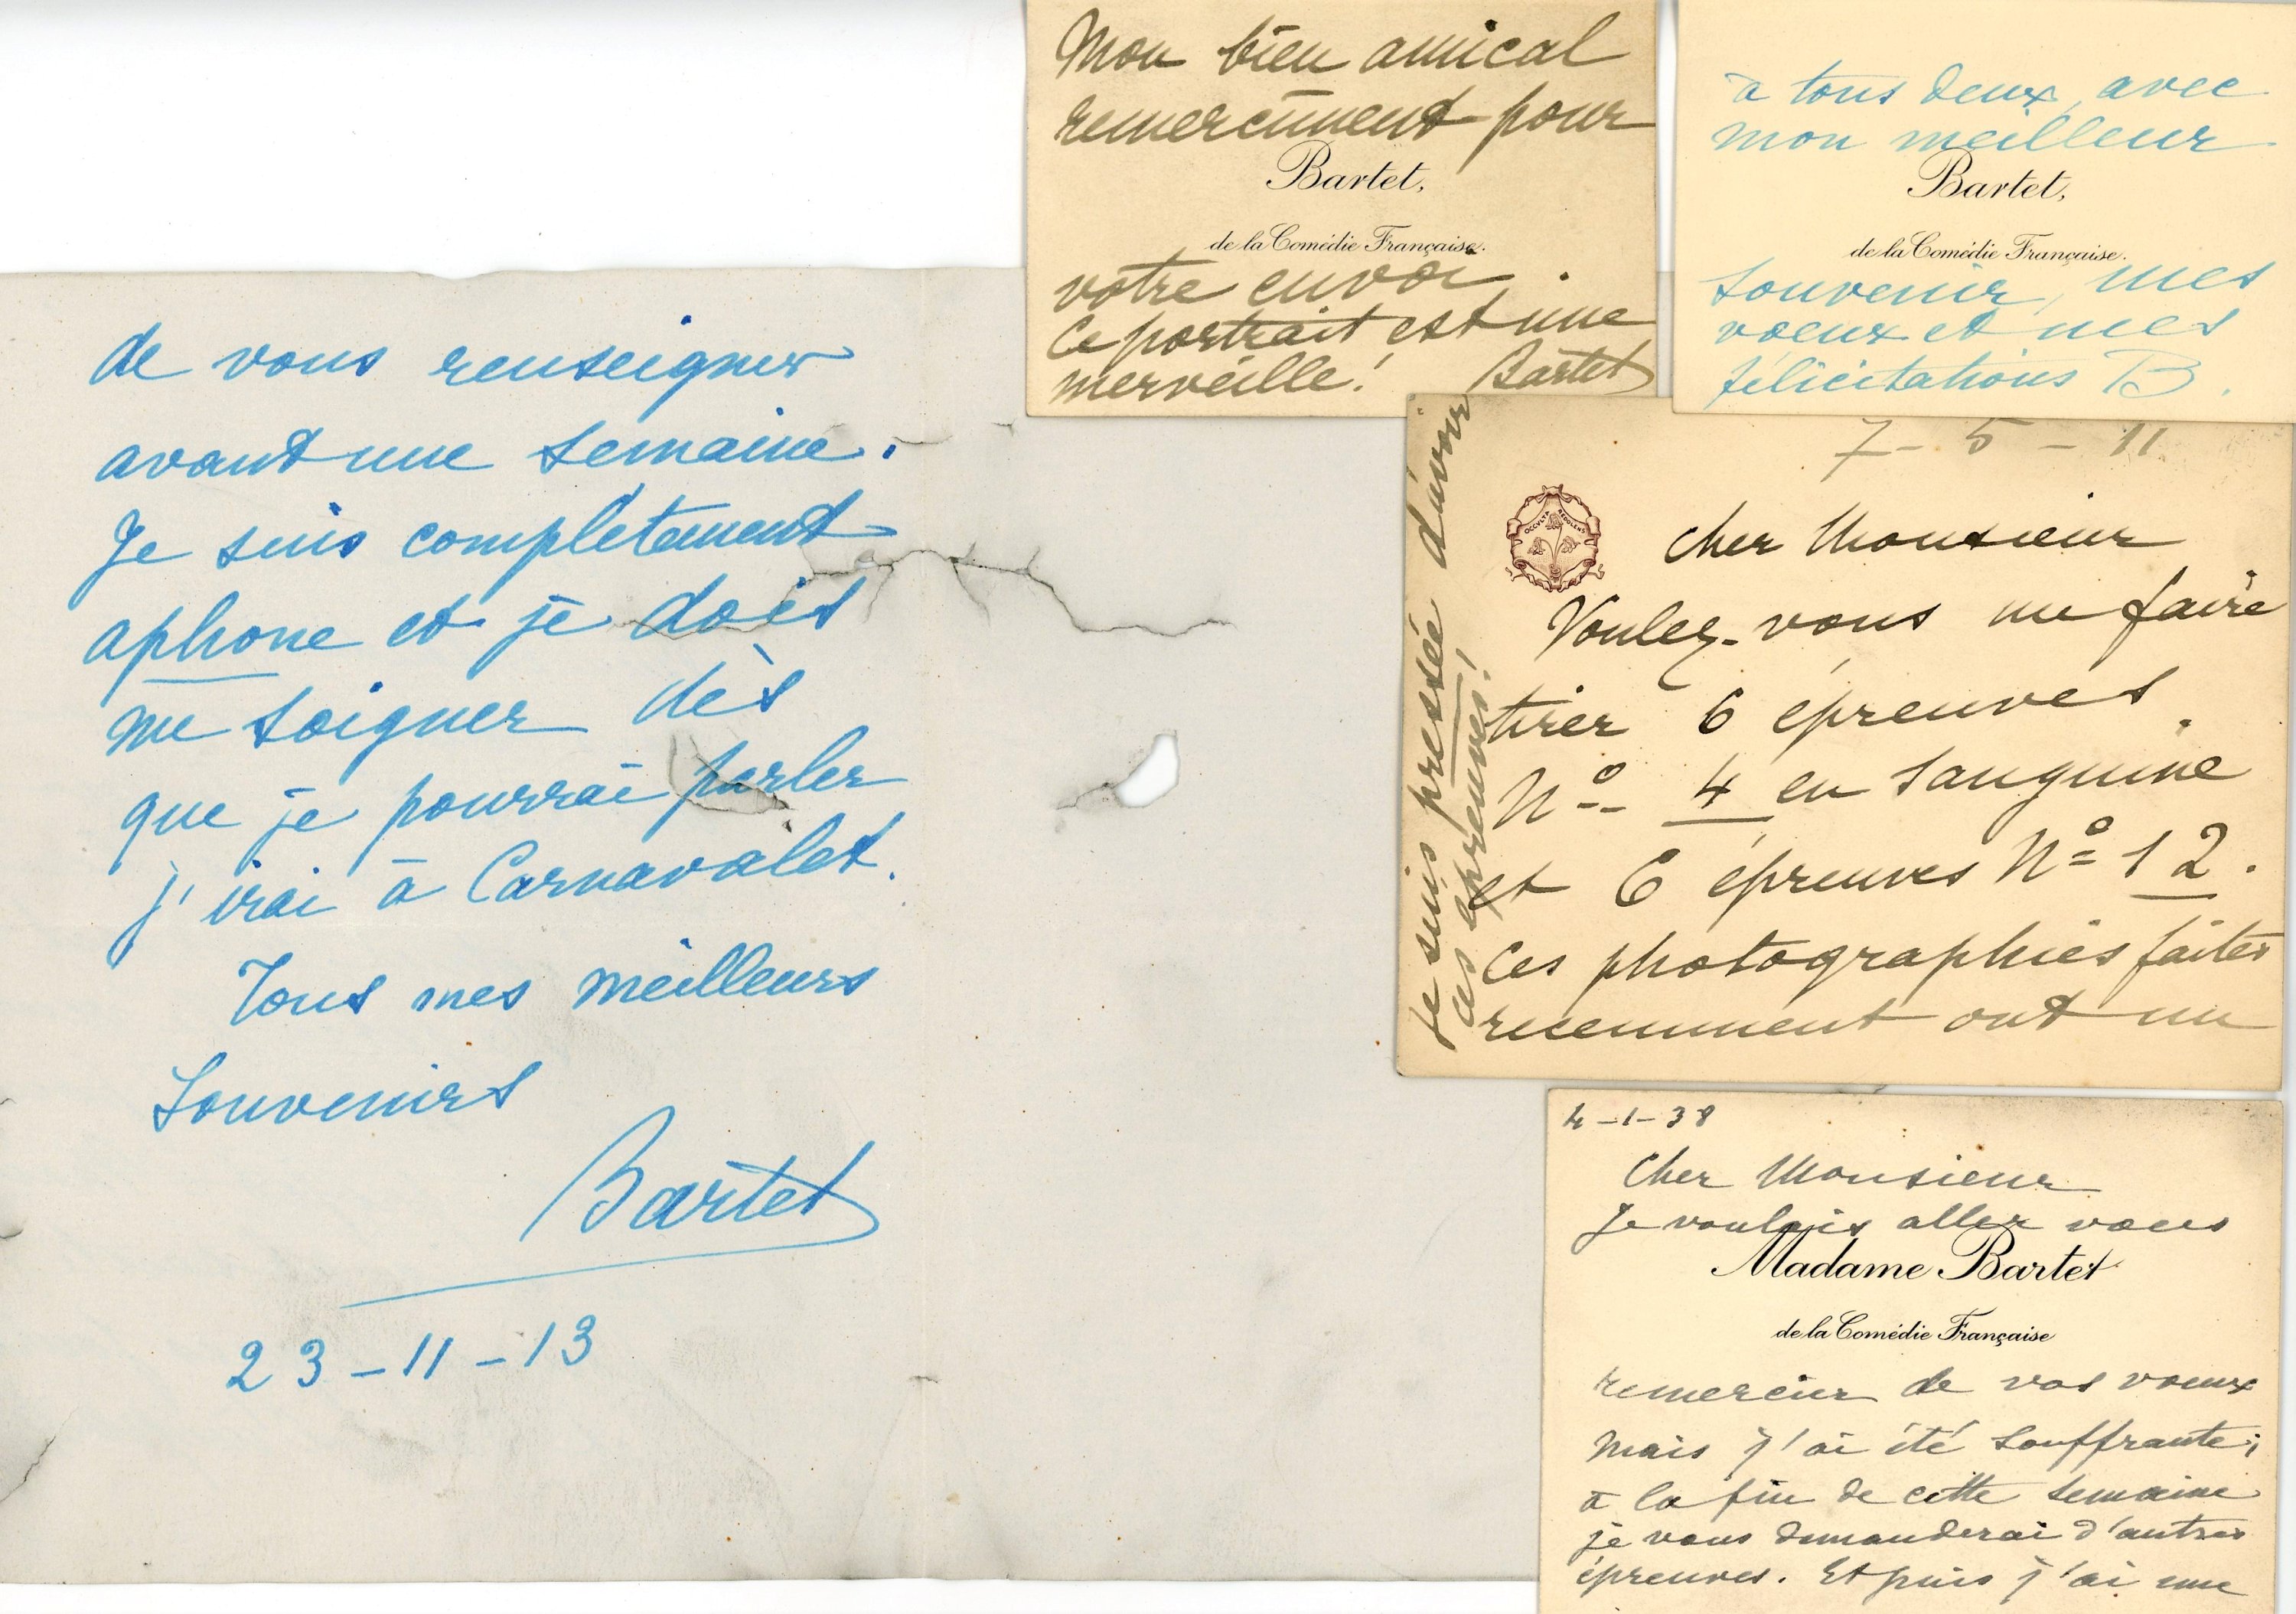 de vous renseigner
avant une semaine.
Je suis completement
aphone et je dois
me soigner dès
que je pourrai parler
j'irai à Carnavalet.
Tous mes meilleurs
Souvenirs
Bartet
23-11-13
Mon bien amical
remerciment pour
Bartet,
de la Comédie Française.
votre envoi.
Ce portrait est une
merveille! Bartet
à tous deux, avec
mon meilleur
Bartet,
de la Comédie Française.
souvenir, mes
voeux et mes
félicitations B.
7-5-11
OCCULTA REDOLENS
Cher Monsieur
Voulez-vous me faire
tirer 6 épreuves
No 4 en sanguine
et 6 épreuves No 12.
Ces photographies faites
recemment ont un
je suis pressée d'avoir
ces épreuves!
4-1-38
Cher Monsieur
Je voulais aller vous
Madame Bartet
de la Comédie Française
remercier de vos voeux
mais j'ai été souffrante;
à la fin de cette semaine
je vous demanderai d'autres
épreuves. Et puis j'ai une